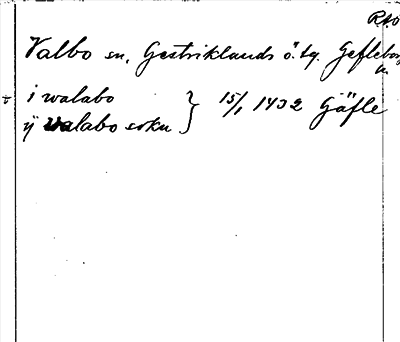 RAO
Valbo sn, Gestriklands ö. tg. Gefleborg
n.
i walabo
ij walabo sokn } 15/1 1432 Gäfle